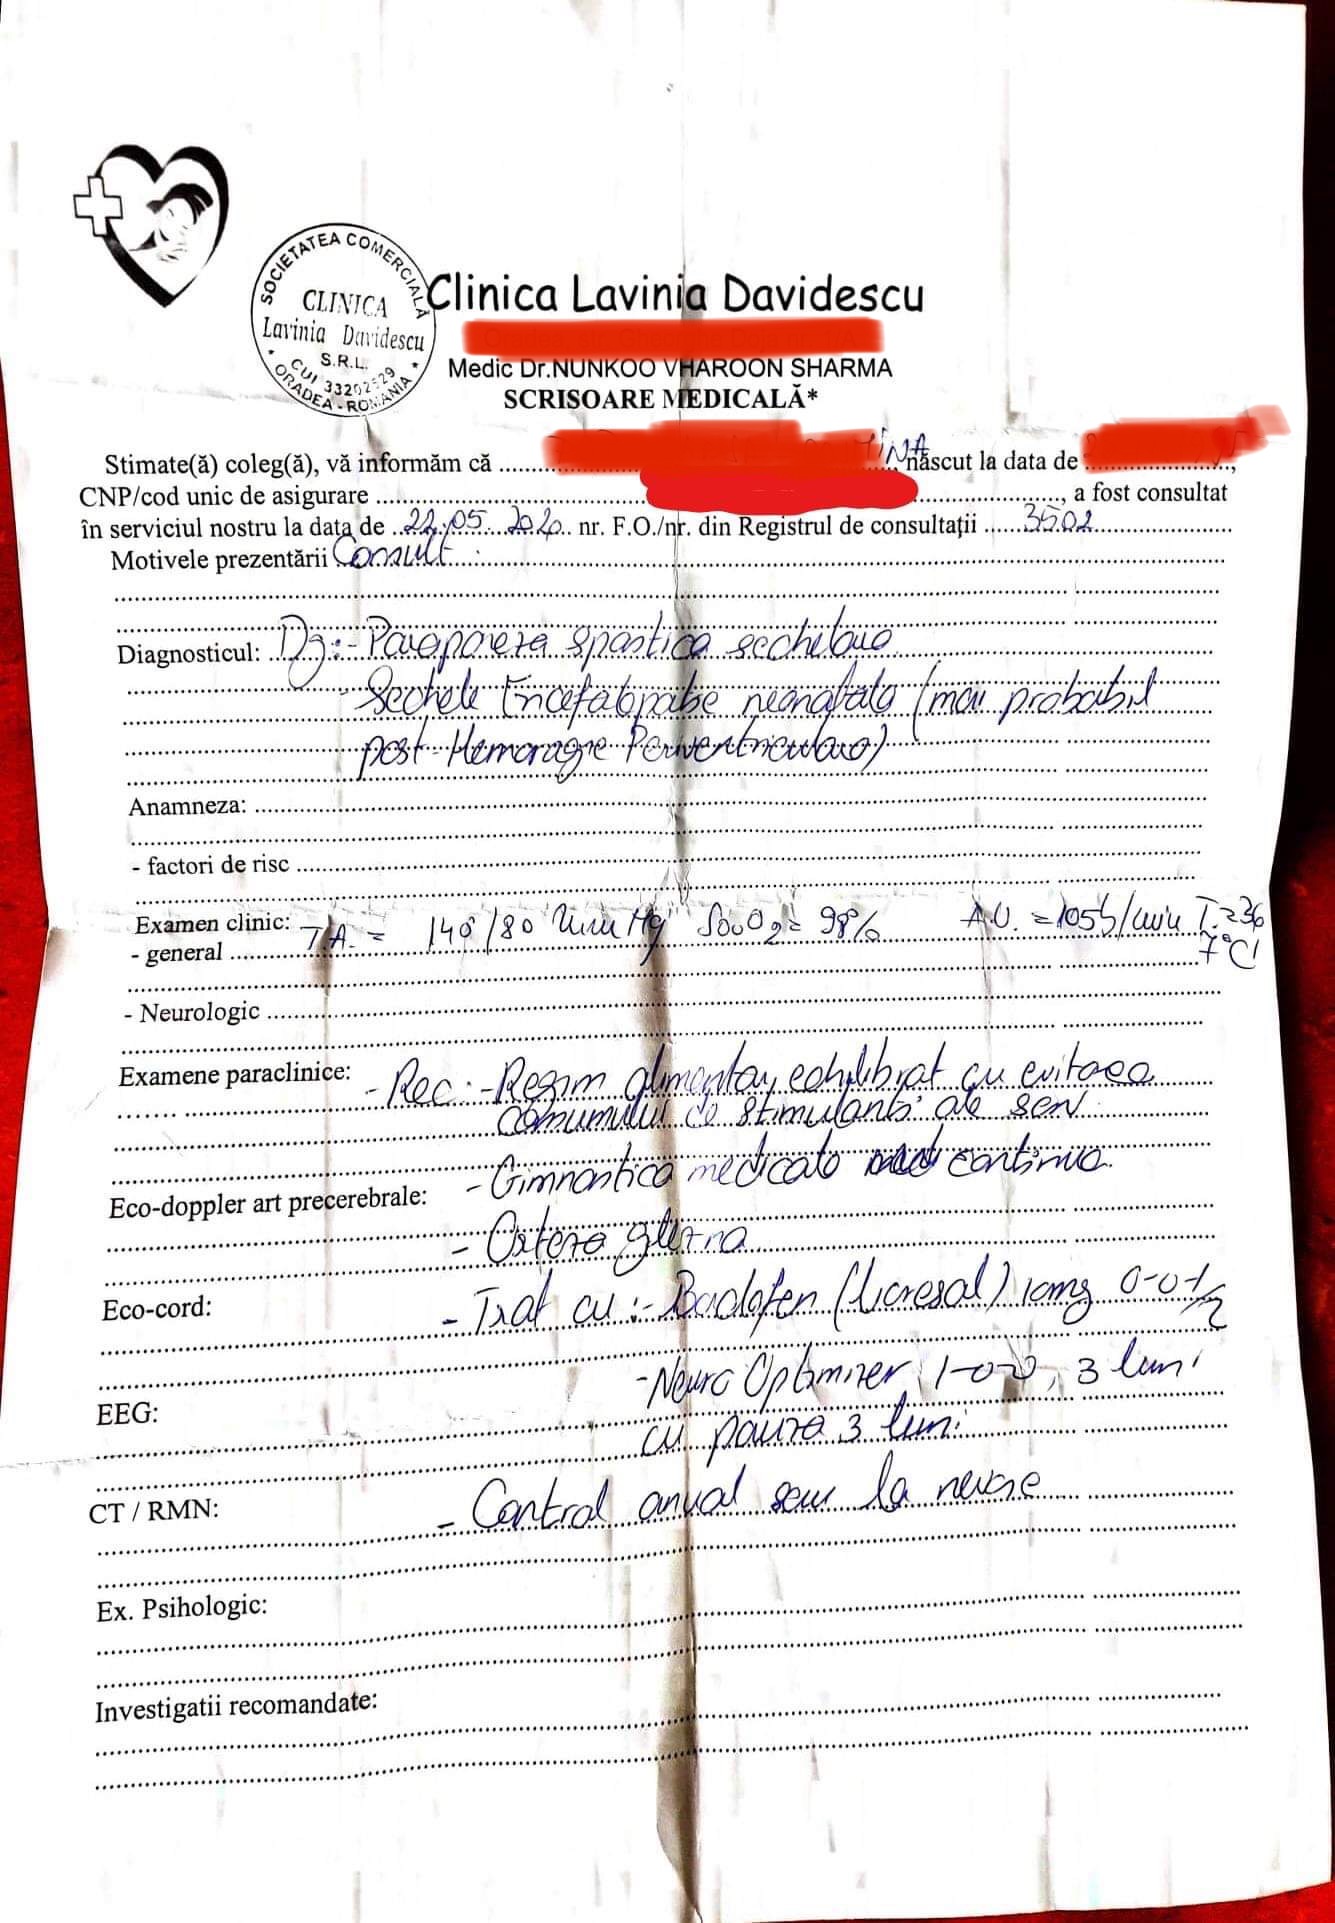 SOCIETATEA COMERCIALĂ
CLINICA
Lavinia Davidescu
S.R.L.
CUI 33202529
* ORADEA - ROMÂNIA *
Clinica Lavinia Davidescu
Medic Dr.NUNKOO VHAROON SHARMA
SCRISOARE MEDICALĂ*
Stimate(ă) coleg(ă), vă informăm că .......... născut la data de ..........,
CNP/cod unic de asigurare .........., a fost consultat
în serviciul nostru la data de 22.05.2020 nr. F.O./nr. din Registrul de consultații ...... 3502
Motivele prezentării Consult
Diagnosticul: Dg:- Parapareza spastica sechelara
- Sechele Encefalopatie neonatala (mai probabil
post-Hemoragie Periventriculara)
Anamneza:
- factori de risc
Examen clinic: T.A. = 140/80 mm Hg 98%
- general
- Neurologic
Examene paraclinice: - Rec: - Regim alimentar echilibrat cu evitarea
consumului de stimulanti ale
- Gimnastica medicala continua
Eco-doppler art precerebrale:
- Orteza glezna
Eco-cord: - Trat cu:- Baclofen (Lioresal) 10mg 0-0-1/2
- Neuro Optimizer 1-0-0, 3 luni
EEG: cu pauza 3 luni
CT / RMN: - Control anual sau la nevoie
Ex. Psihologic:
Investigatii recomandate: